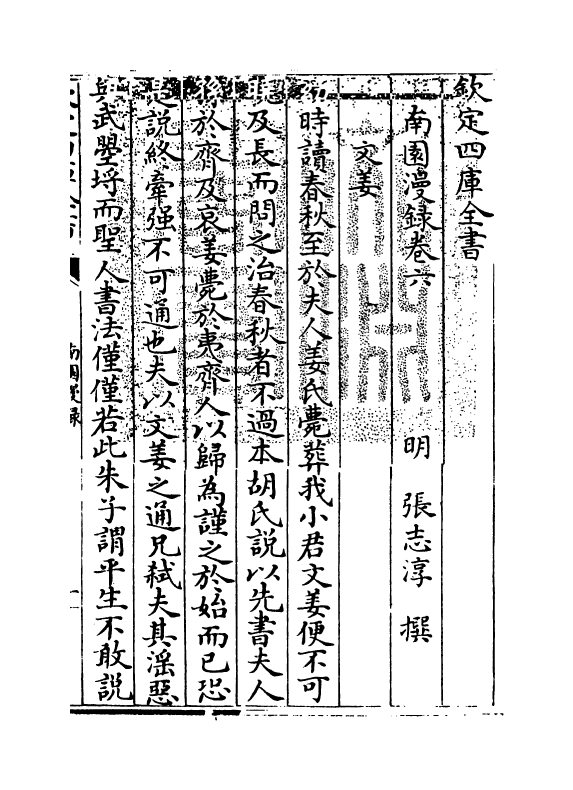 欽定四庫全書
南園漫錄卷六
明 張志淳 撰
文姜
時讀春秋至於夫人姜氏薨葬我小君文姜便不可
及長而問之治春秋者不過本胡氏說以先書夫人
孫於齊及哀姜薨於夷齊人以歸為謹之於始而已恐
說終牽强不可通也夫以文姜之通兄弒夫其淫惡
與武曌埒而聖人書法僅僅若此朱子謂平生不敢說
南園漫錄
一